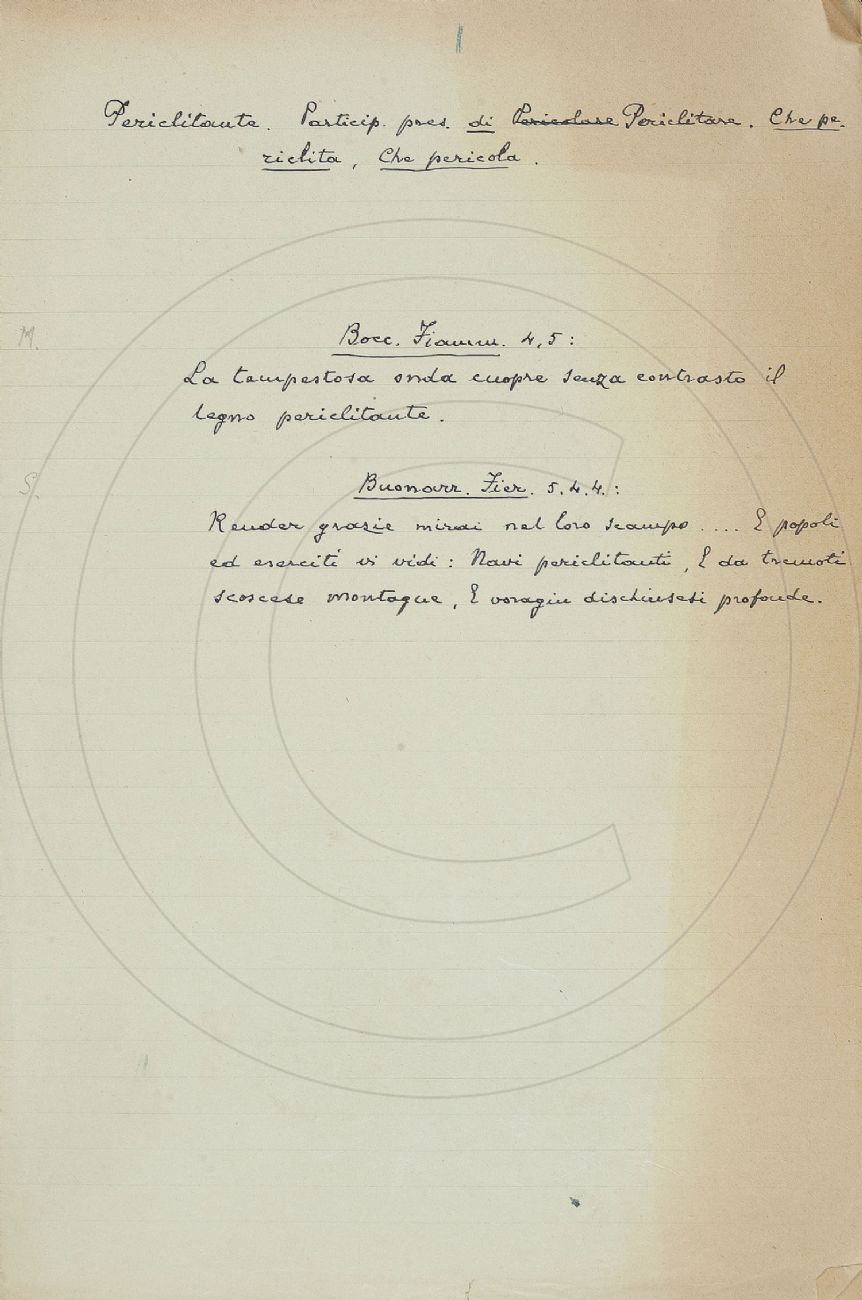 Periclitante. Particip. pres. di Pericolare Periclitare. Che pe-
riclita, Che pericola.
M.
Bocc. Fiamm. 4, 5:
La tempestosa onda cuopre senza contrasto il
legno periclitante.
S.
Buonarr. Fier. 5. 4. 4.:
Render grazie mirai nel loro scampo .... E popoli
ed eserciti vi vidi: Navi periclitanti, E da tremoti
scoscese montagne, E voragin dischiusesi profonde.